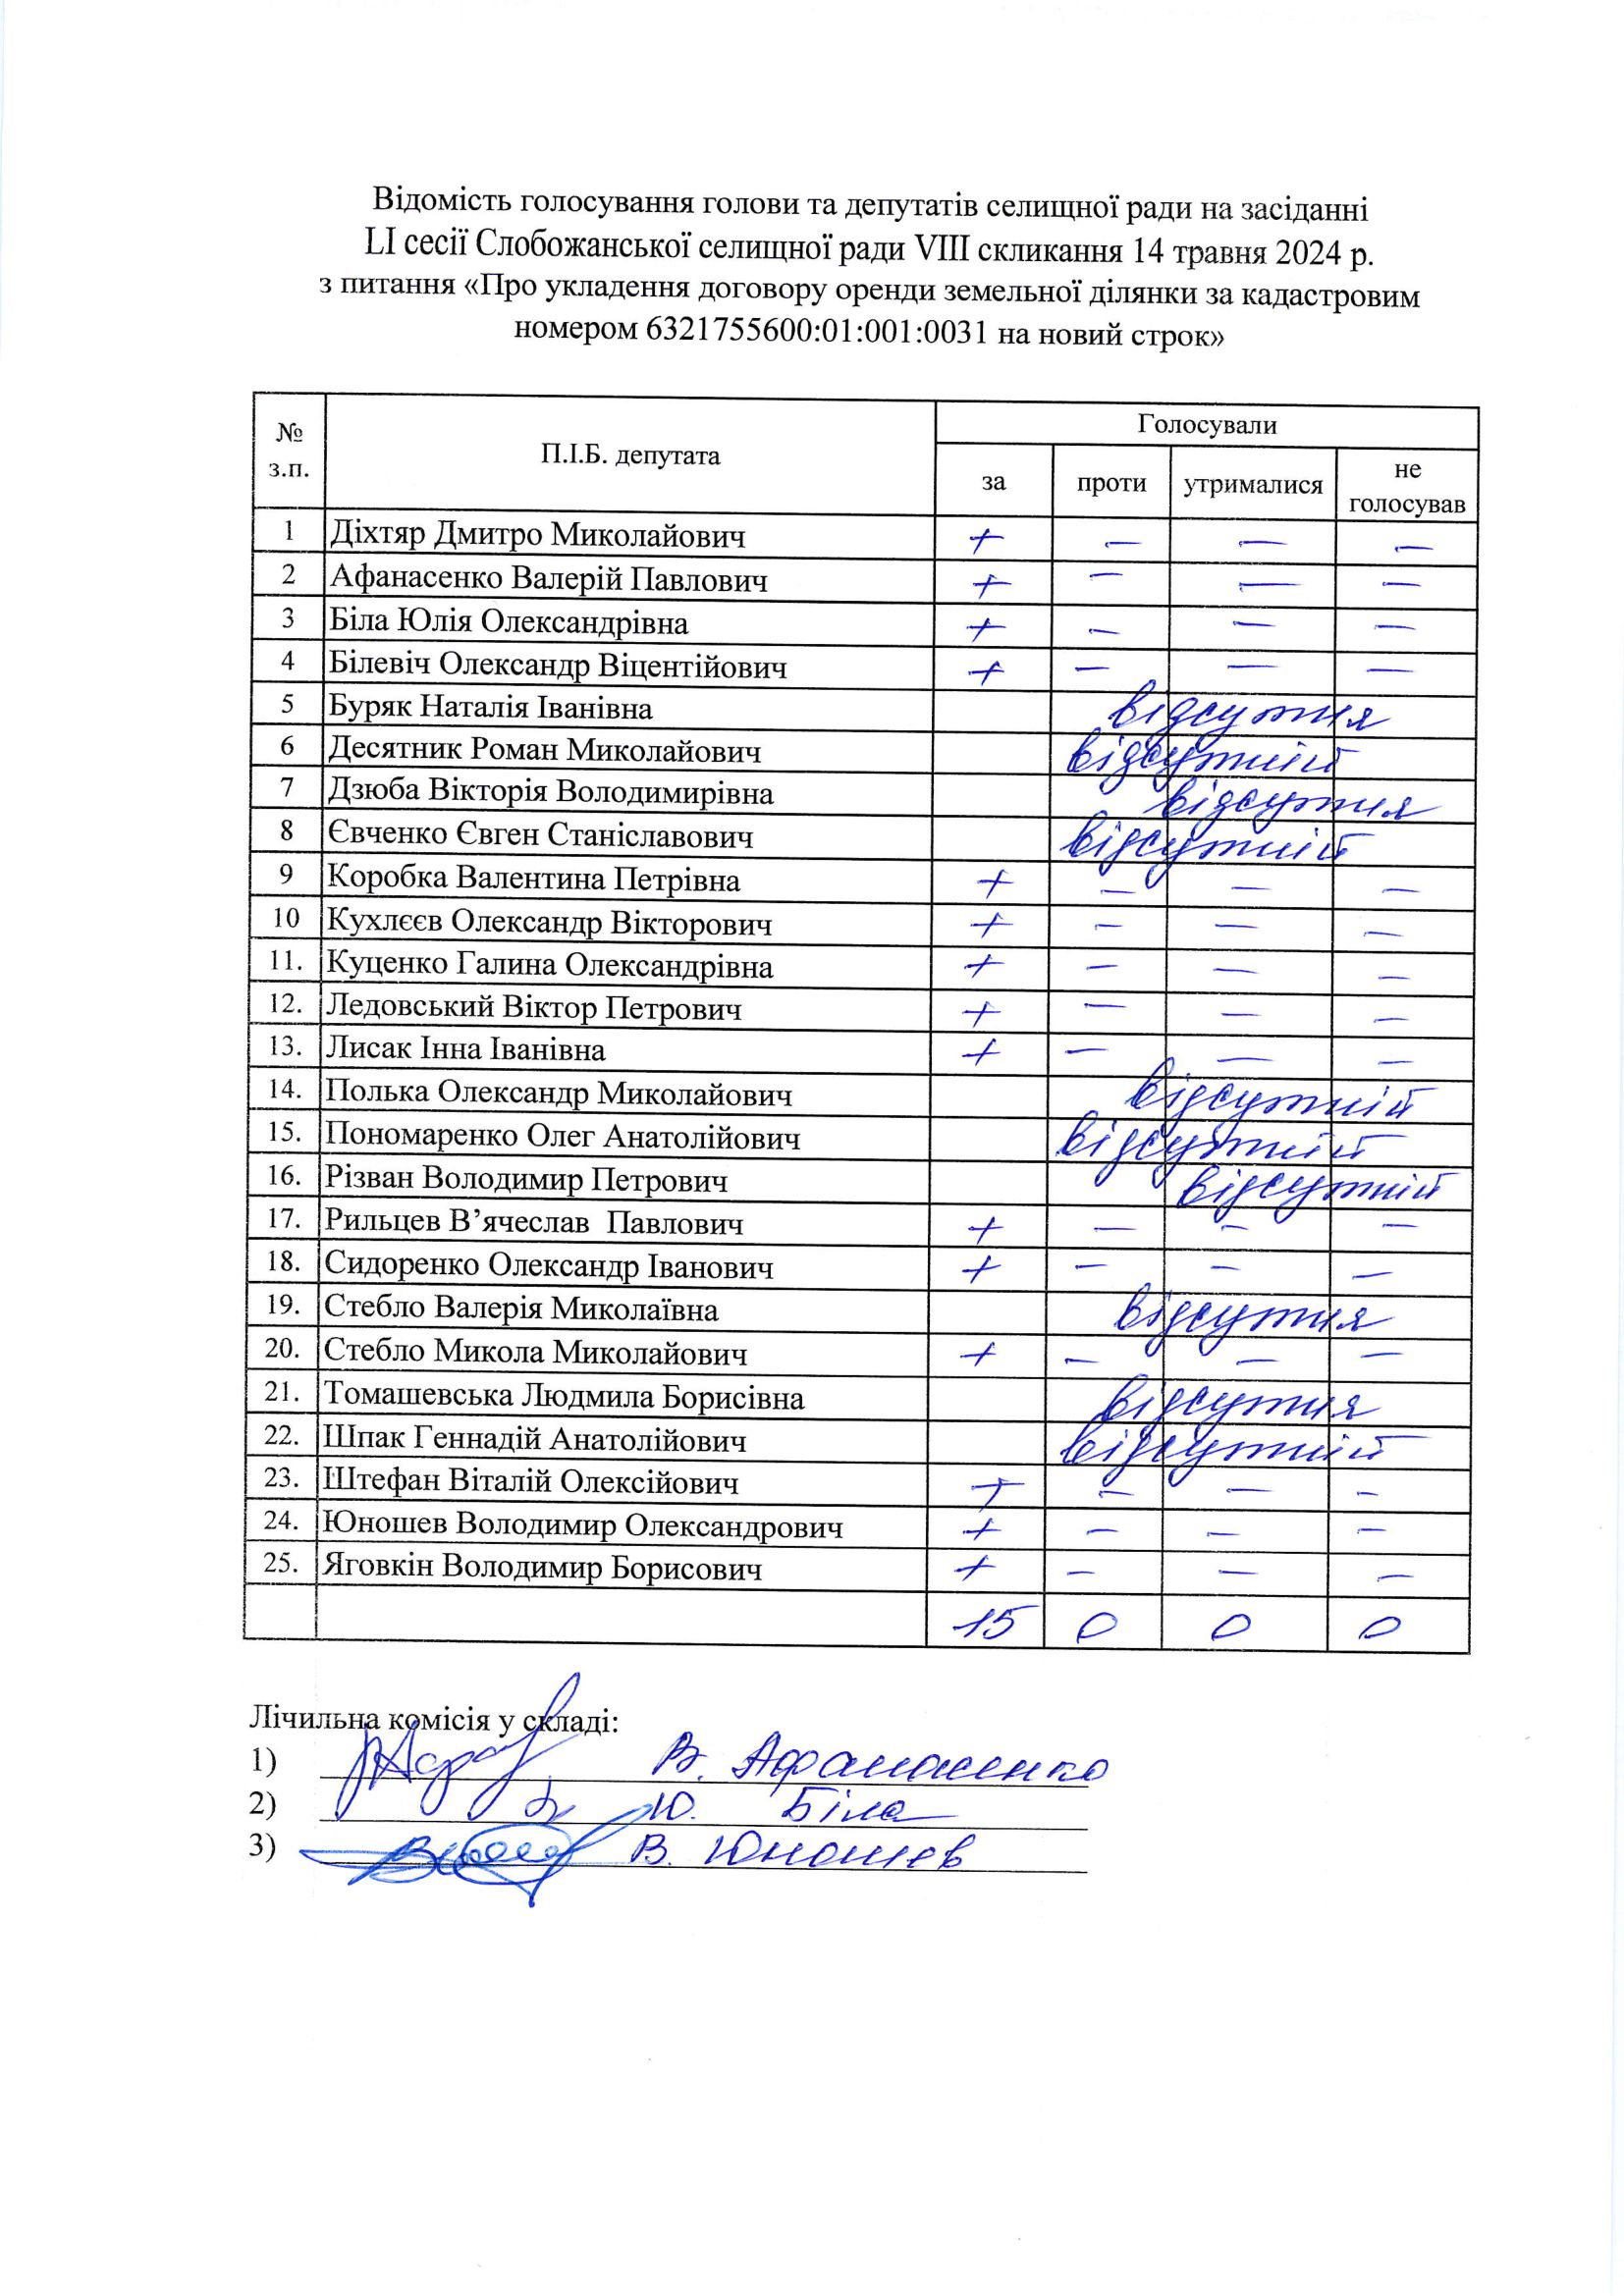 Відомість голосування голови та депутатів селищної ради на засіданні
LI сесії Слобожанської селищної ради VIII скликання 14 травня 2024 р.
з питання «Про укладення договору оренди земельної ділянки за кадастровим
номером 6321755600:01:001:0031 на новий строк»
№ з.п. П.І.Б. депутата Голосували
за проти утрималися не голосував
1 Діхтяр Дмитро Миколайович + — — —
2 Афанасенко Валерій Павлович + — — —
3 Біла Юлія Олександрівна + — — —
4 Білевіч Олександр Віцентійович + — — —
5 Буряк Наталія Іванівна відсутня
6 Десятник Роман Миколайович відсутній
7 Дзюба Вікторія Володимирівна відсутня
8 Євченко Євген Станіславович відсутній
9 Коробка Валентина Петрівна + — — —
10 Кухлєєв Олександр Вікторович + — — —
11. Куценко Галина Олександрівна + — — —
12. Ледовський Віктор Петрович + — — —
13. Лисак Інна Іванівна + — — —
14. Полька Олександр Миколайович відсутній
15. Пономаренко Олег Анатолійович відсутній
16. Різван Володимир Петрович відсутній
17. Рильцев В’ячеслав Павлович + — — —
18. Сидоренко Олександр Іванович + — — —
19. Стебло Валерія Миколаївна відсутня
20. Стебло Микола Миколайович + — — —
21. Томашевська Людмила Борисівна відсутня
22. Шпак Геннадій Анатолійович відсутній
23. Штефан Віталій Олексійович + — — —
24. Юношев Володимир Олександрович + — — —
25. Яговкін Володимир Борисович + — — —
15 0 0 0
Лічильна комісія у складі:
1) В. Афанасенко
2) Ю. Біла
3) В. Юношев